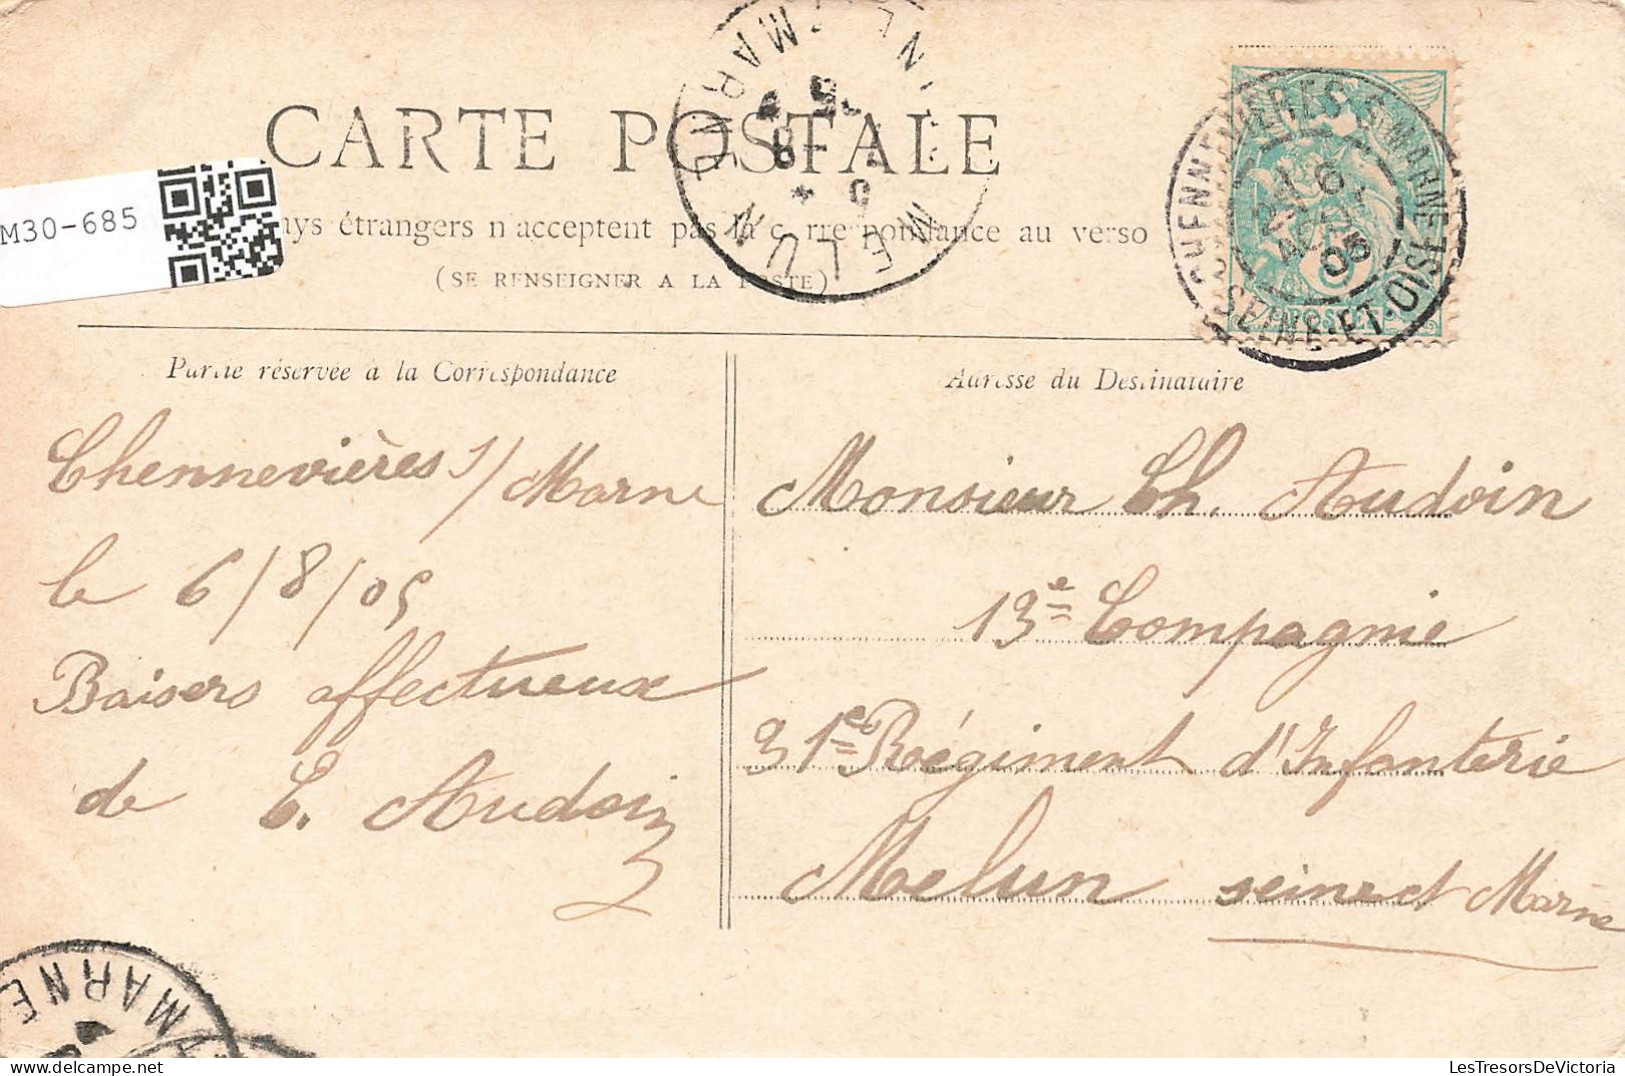 CARTE POSTALE
M30-685
ays étrangers n'acceptent pas la correspondance au verso
(SE RENSEIGNER A LA POSTE)
MELUN
MARNE
CHENNEVIÈRES S. MARNE
6
AOUT
05
SEINE-ET-OISE
5
POSTES
Partie réservée à la Correspondance
Adresse du Destinataire
Chennevières s/ Marne
le 6/8/05
Baisers affectueux
de E. Audoin
Monsieur Ch. Audoin
13e Compagnie
31e Régiment d'Infanterie
Melun seine et Marne
MARNE
LesTresorsDeVictoria